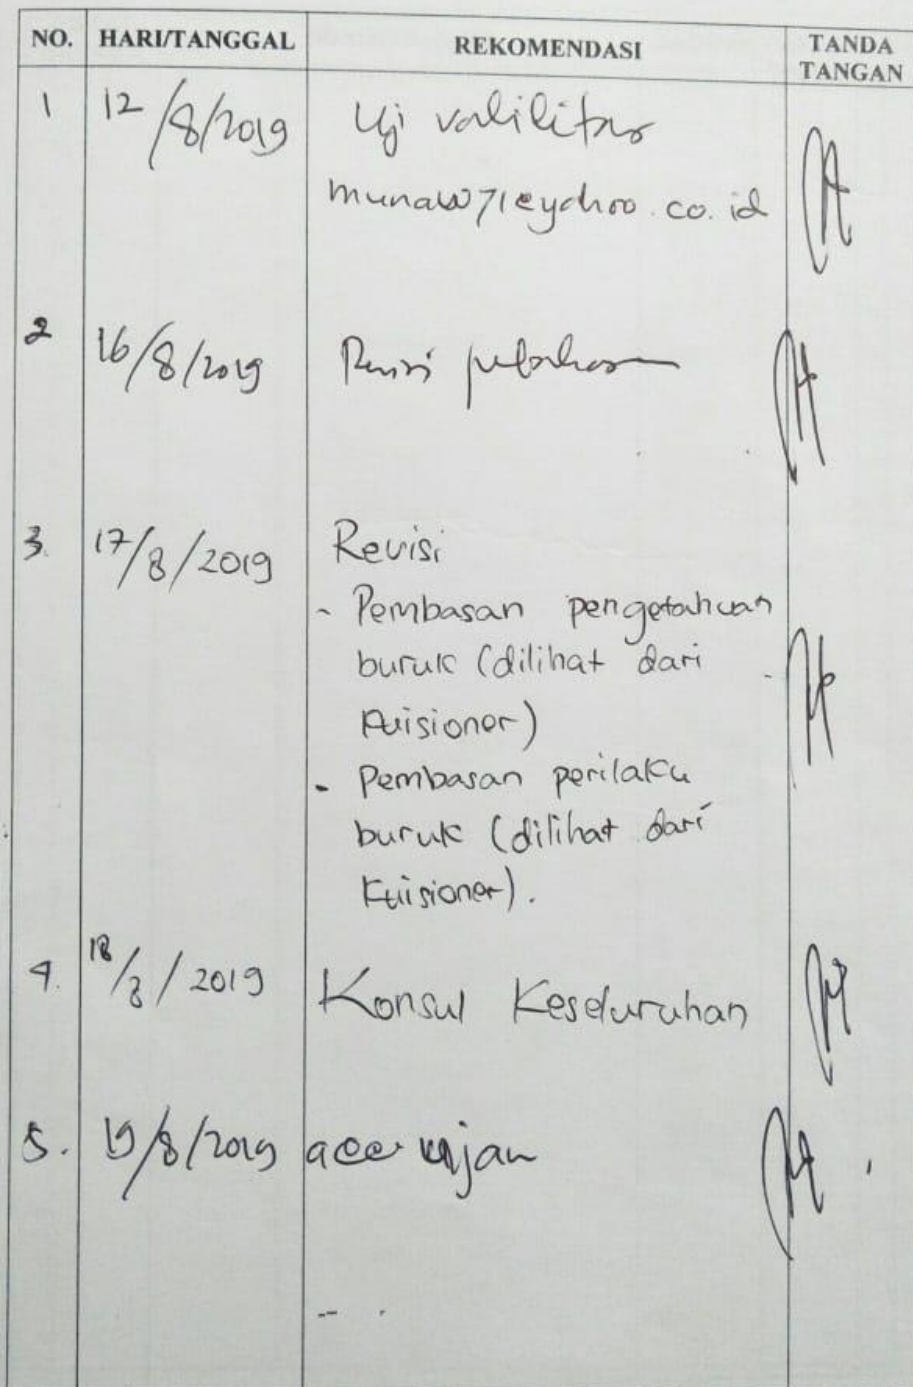 NO. HARI/TANGGAL REKOMENDASI TANDA TANGAN
1 12/8/2019 Uji validitas
munaw71@yahoo.co.id
2 16/8/2019 Revisi
3. 17/8/2019 Revisi
- Pembasan pengetahuan
buruk (dilihat dari
kuisioner)
- Pembasan perilaku
buruk (dilihat dari
kuisioner).
4. 18/8/2019 Konsul Keseluruhan
5. 19/8/2019 acc ujian